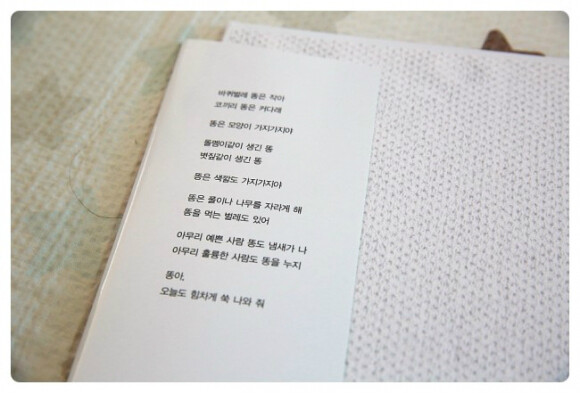 바퀴벌레 똥은 작아
코끼리 똥은 커다래
똥은 모양이 가지가지야
돌멩이같이 생긴 똥
볏짚같이 생긴 똥
똥은 색깔도 가지가지야
똥은 풀이나 나무를 자라게 해
똥을 먹는 벌레도 있어
아무리 예쁜 사람 똥도 냄새가 나
아무리 훌륭한 사람도 똥을 누지
똥아,
오늘도 힘차게 쑥 나와 줘